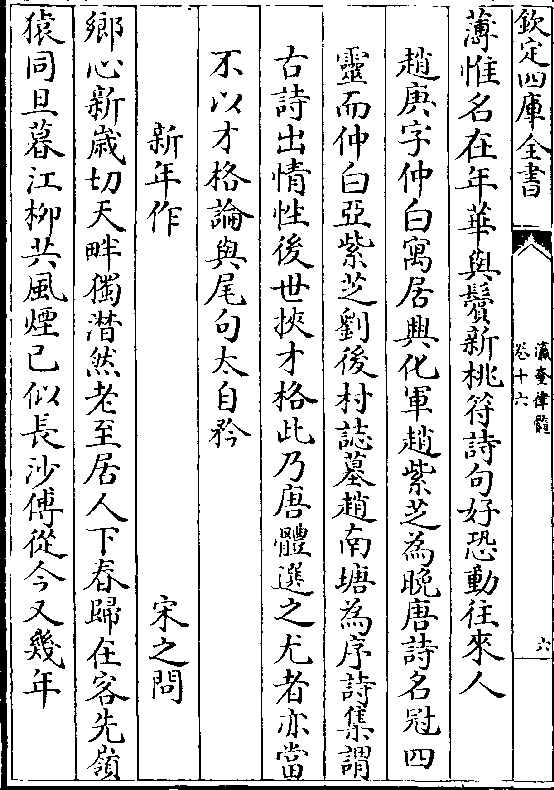 欽定四庫全書
瀛奎律髓
卷十六
六
薄惟名在年華與鬢新桃符詩句好恐動往來人
趙庚字仲白寓居興化軍趙紫芝為晚唐詩名冠四
靈而仲白亞紫芝劉後村誌墓趙南塘為序詩集謂
古詩出情性後世挾才格此乃唐體選之尤者亦當
不以才格論與尾句太自矜
新年作
宋之問
鄉心新歲切天畔獨潸然老至居人下春歸在客先嶺
猿同旦暮江柳共風煙已似長沙傅從今又幾年